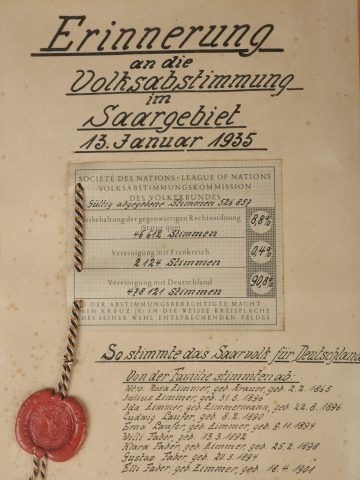 Erinnerung
an die
Volksabstimmung
im
Saargebiet
13. Januar 1935
SOCIÉTÉ DES NATIONS - LEAGUE OF NATIONS
VOLKSABSTIMMUNGSKOMMISSION
DES VÖLKERBUNDES
Gültig abgegebene Stimmen 526 857
Beibehaltung der gegenwärtigen Rechtsordnung
(Status quo)
46 612 Stimmen
8,8%
Vereinigung mit Frankreich
2 124 Stimmen
0,4%
Vereinigung mit Deutschland
478 121 Stimmen
90,8%
DER ABSTIMMUNGSBERECHTIGTE MACHT
EIN KREUZ (X) IN DIE WEISSE KREISFLÄCHE
DES SEINER WAHL ENTSPRECHENDEN FELDES
So stimmte das Saarvolk für Deutschland
Von der Familie stimmten ab:
Wtw. Rosa Zimmer, geb. Krause, geb. 2. 2. 1865
Julius Zimmer, geb. 31. 5. 1896
Ida Zimmer, geb. Zimmermann, geb. 22. 8. 1896
Ludwig Laufer, geb. 8. 2. 1890
Erna Laufer, geb. Zimmer, geb. 9. 11. 1894
Willi Faber, geb. 13. 3. 1892
Klara Faber, geb. Zimmer, geb. 25. 2. 1898
Gustav Faber, geb. 20. 5. 1894
Elli Faber, geb. Zimmer, geb. 16. 4. 1901